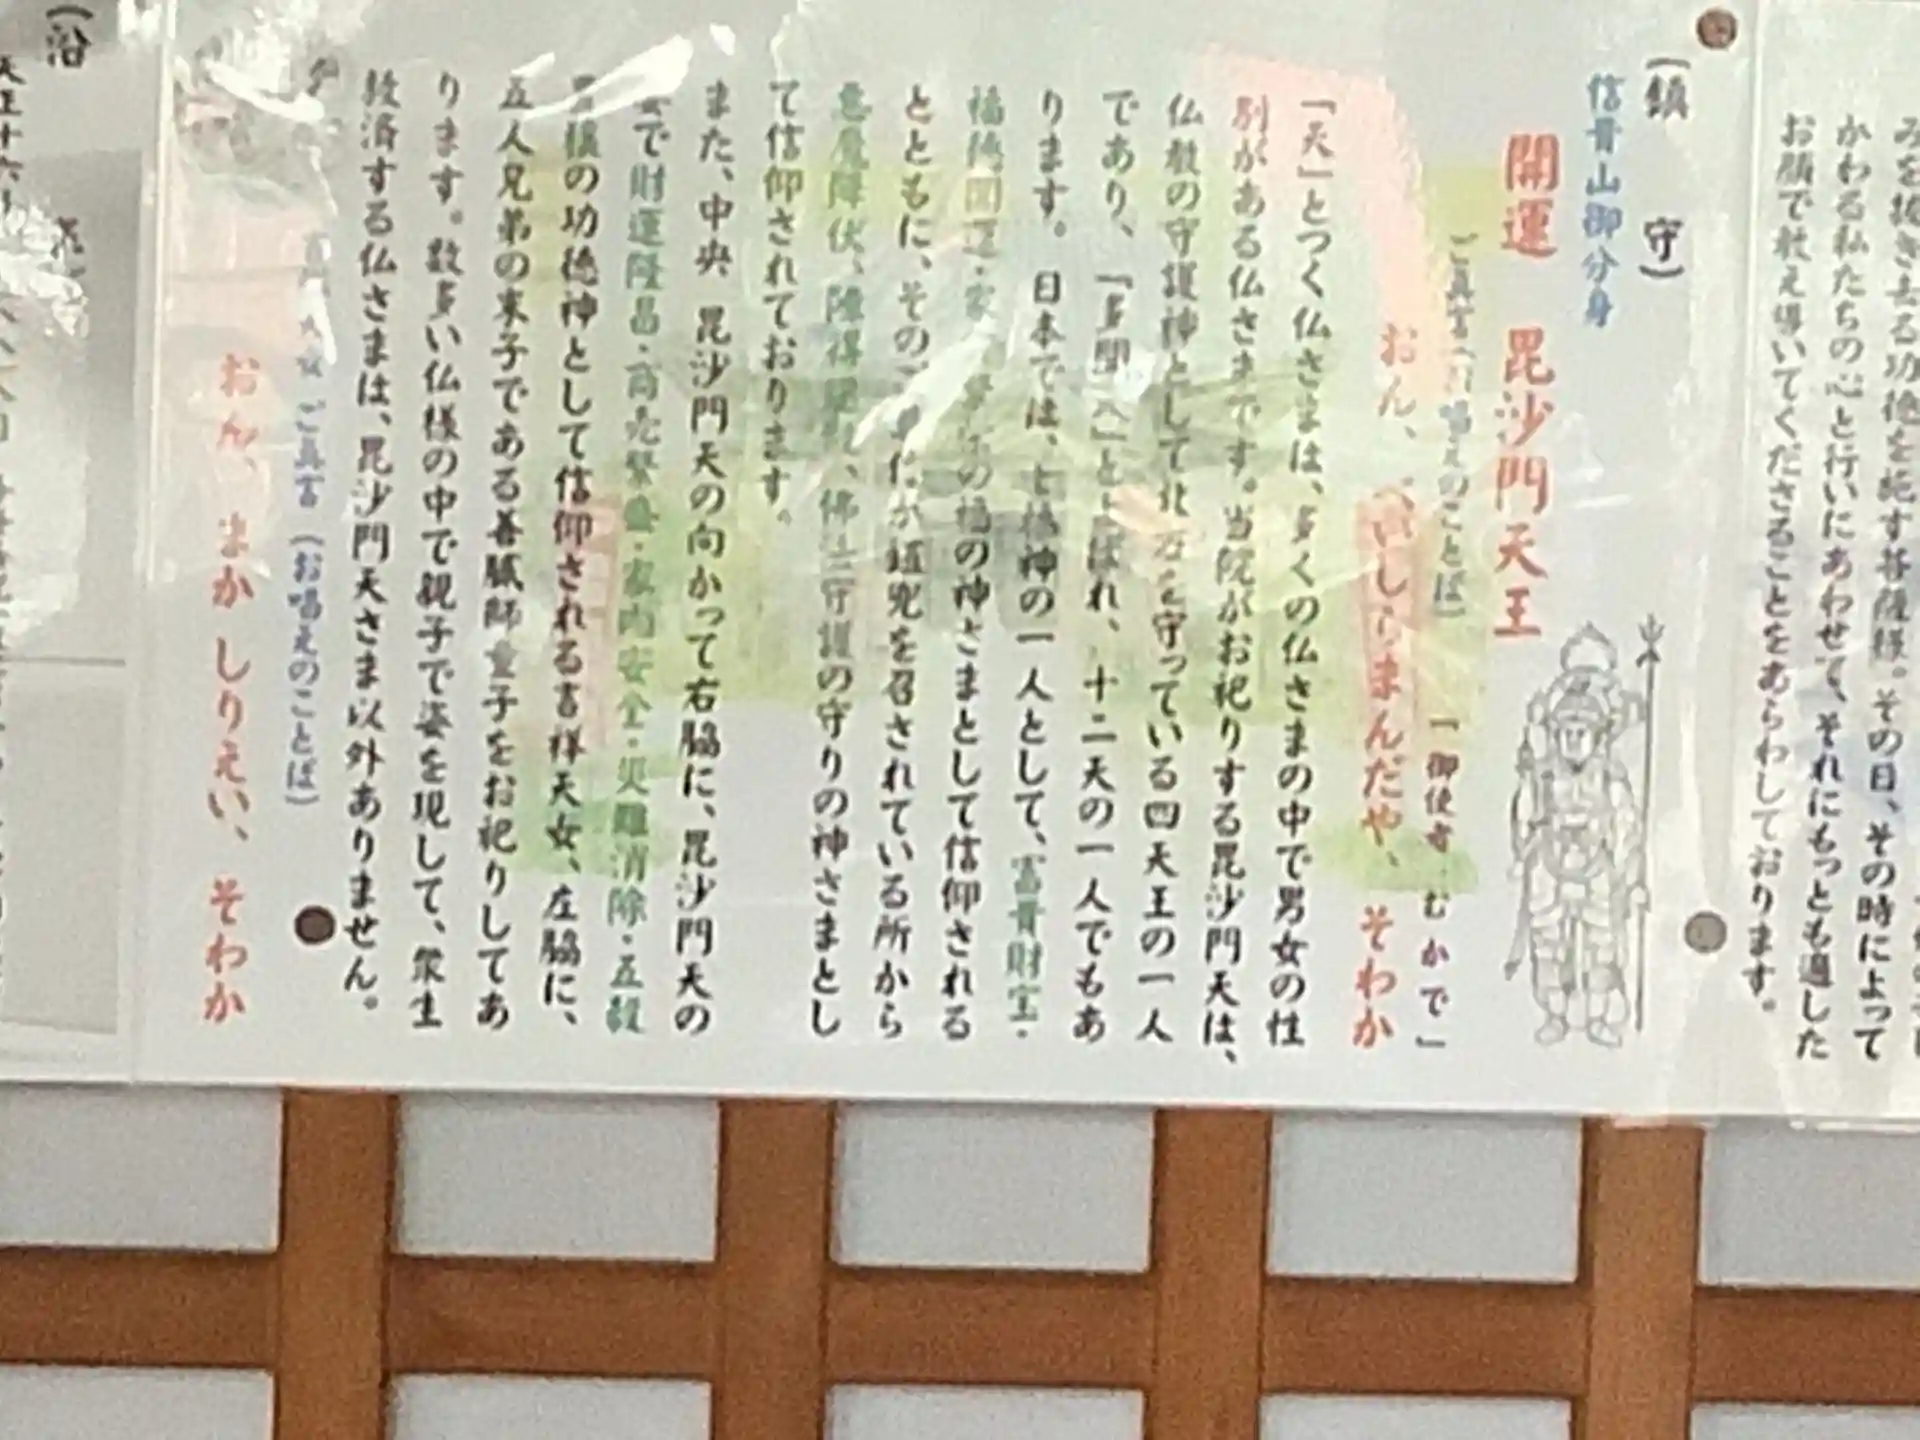 みを抜き去る功徳を施す菩薩様。その日、その時によって
かわる私たちの心と行いにあわせて、それにもっとも適した
お顔で教え導いてくださることをあらわしております。
(鎮 守)
信貴山御分身
開運 毘沙門天王
ご真言(お唱えのことば) 「御使者 むかで」
おん、べいしらまんだや、そわか
「天」とつく仏さまは、多くの仏さまの中で男女の性
別がある仏さまです。当院がお祀りする毘沙門天は、
仏教の守護神として北方を守っている四天王の一人
であり、「多聞天」とよばれ、十二天の一人でもあ
ります。日本では、七福神の一人として、富貴財宝・
福徳開運・家の福の神さまとして信仰される
とともに、その鎧兜を召されている所から
悪魔降伏、障得、佛法守護の守りの神さまとし
て信仰されております。
また、中央 毘沙門天の向かって右脇に、毘沙門天の
妻で財運隆昌・商売繁盛・家内安全・災難消除・五穀
豊穣の功徳神として信仰される吉祥天女、左脇に、
五人兄弟の末子である善膩師童子をお祀りしてあ
ります。数多い仏様の中で親子で姿を現して、衆生
救済する仏さまは、毘沙門天さま以外ありません。
天女 ご真言(お唱えのことば)
おん、まか しりえい、そわか